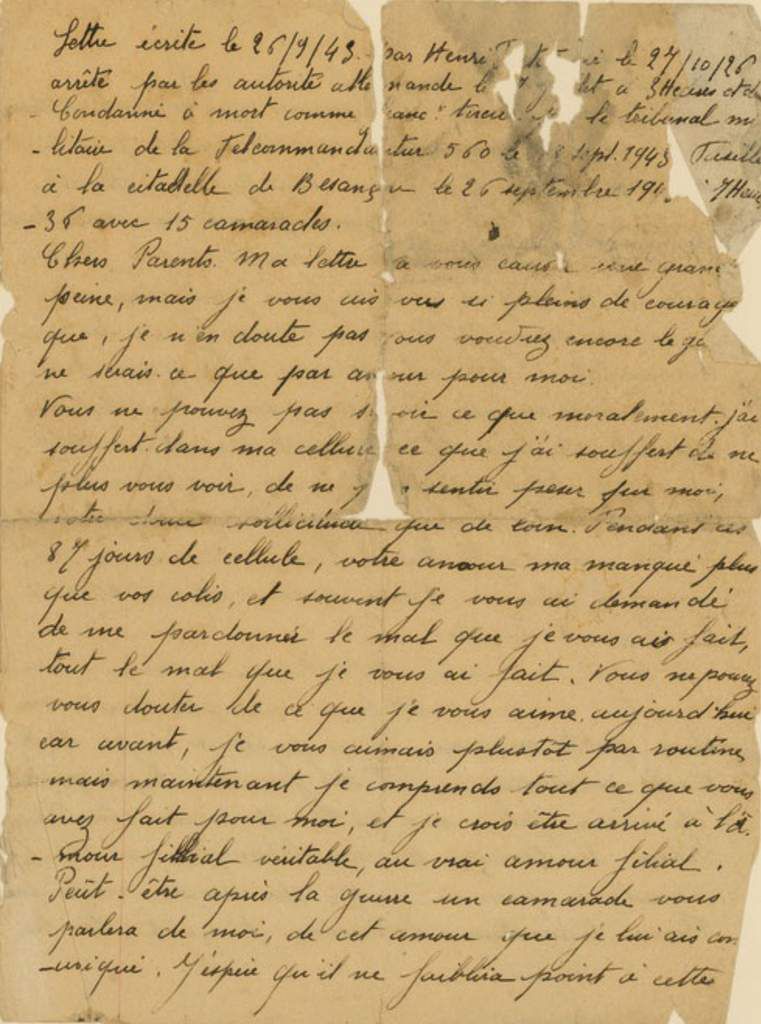 Lettre écrite le 26/9/43 par Henri né le 27/10/26
arrêté par les autorité alle mande le à 3 Heures et
- Condanné à mort comme franc tireur le tribunal mi
- litaire de la Felcommandantur 560 le sept. 1943 Fusillé
à la citadelle de Besançon le 26 septembre 19 7 Heures
- 36 avec 15 camarades.
Chers Parents. Ma lettre va vous causer une grande
peine, mais je vous ais vus si pleins de courage
que, je n'en doute pas vous voudrez encore le ga
ne serais-ce que par amour pour moi.
Vous ne pouvez pas savoir ce que moralement j'ai
souffert dans ma cellule ce que j'ai souffert de ne
plus vous voir, de ne sentir peser sur moi,
votre sollicitude que de loin. Pendant ces
87 jours de cellule, votre amour ma manqué plus
que vos colis, et souvent je vous ai demandé
de me pardonner le mal que je vous ais fait,
tout le mal que je vous ai fait. Vous ne pouvez
vous douter de ce que je vous aime aujourd'hui
car avant, je vous aimais plustot par routine
mais maintenant je comprends tout ce que vous
avez fait pour moi, et je crois être arrivé à l'a
- mour fillial véritable, au vrai amour filial.
Peût-être après la guerre un camarade vous
parlera de moi, de cet amour que je lui ais com
- uniqué. J'éspère qu'il ne faiblira point à cette